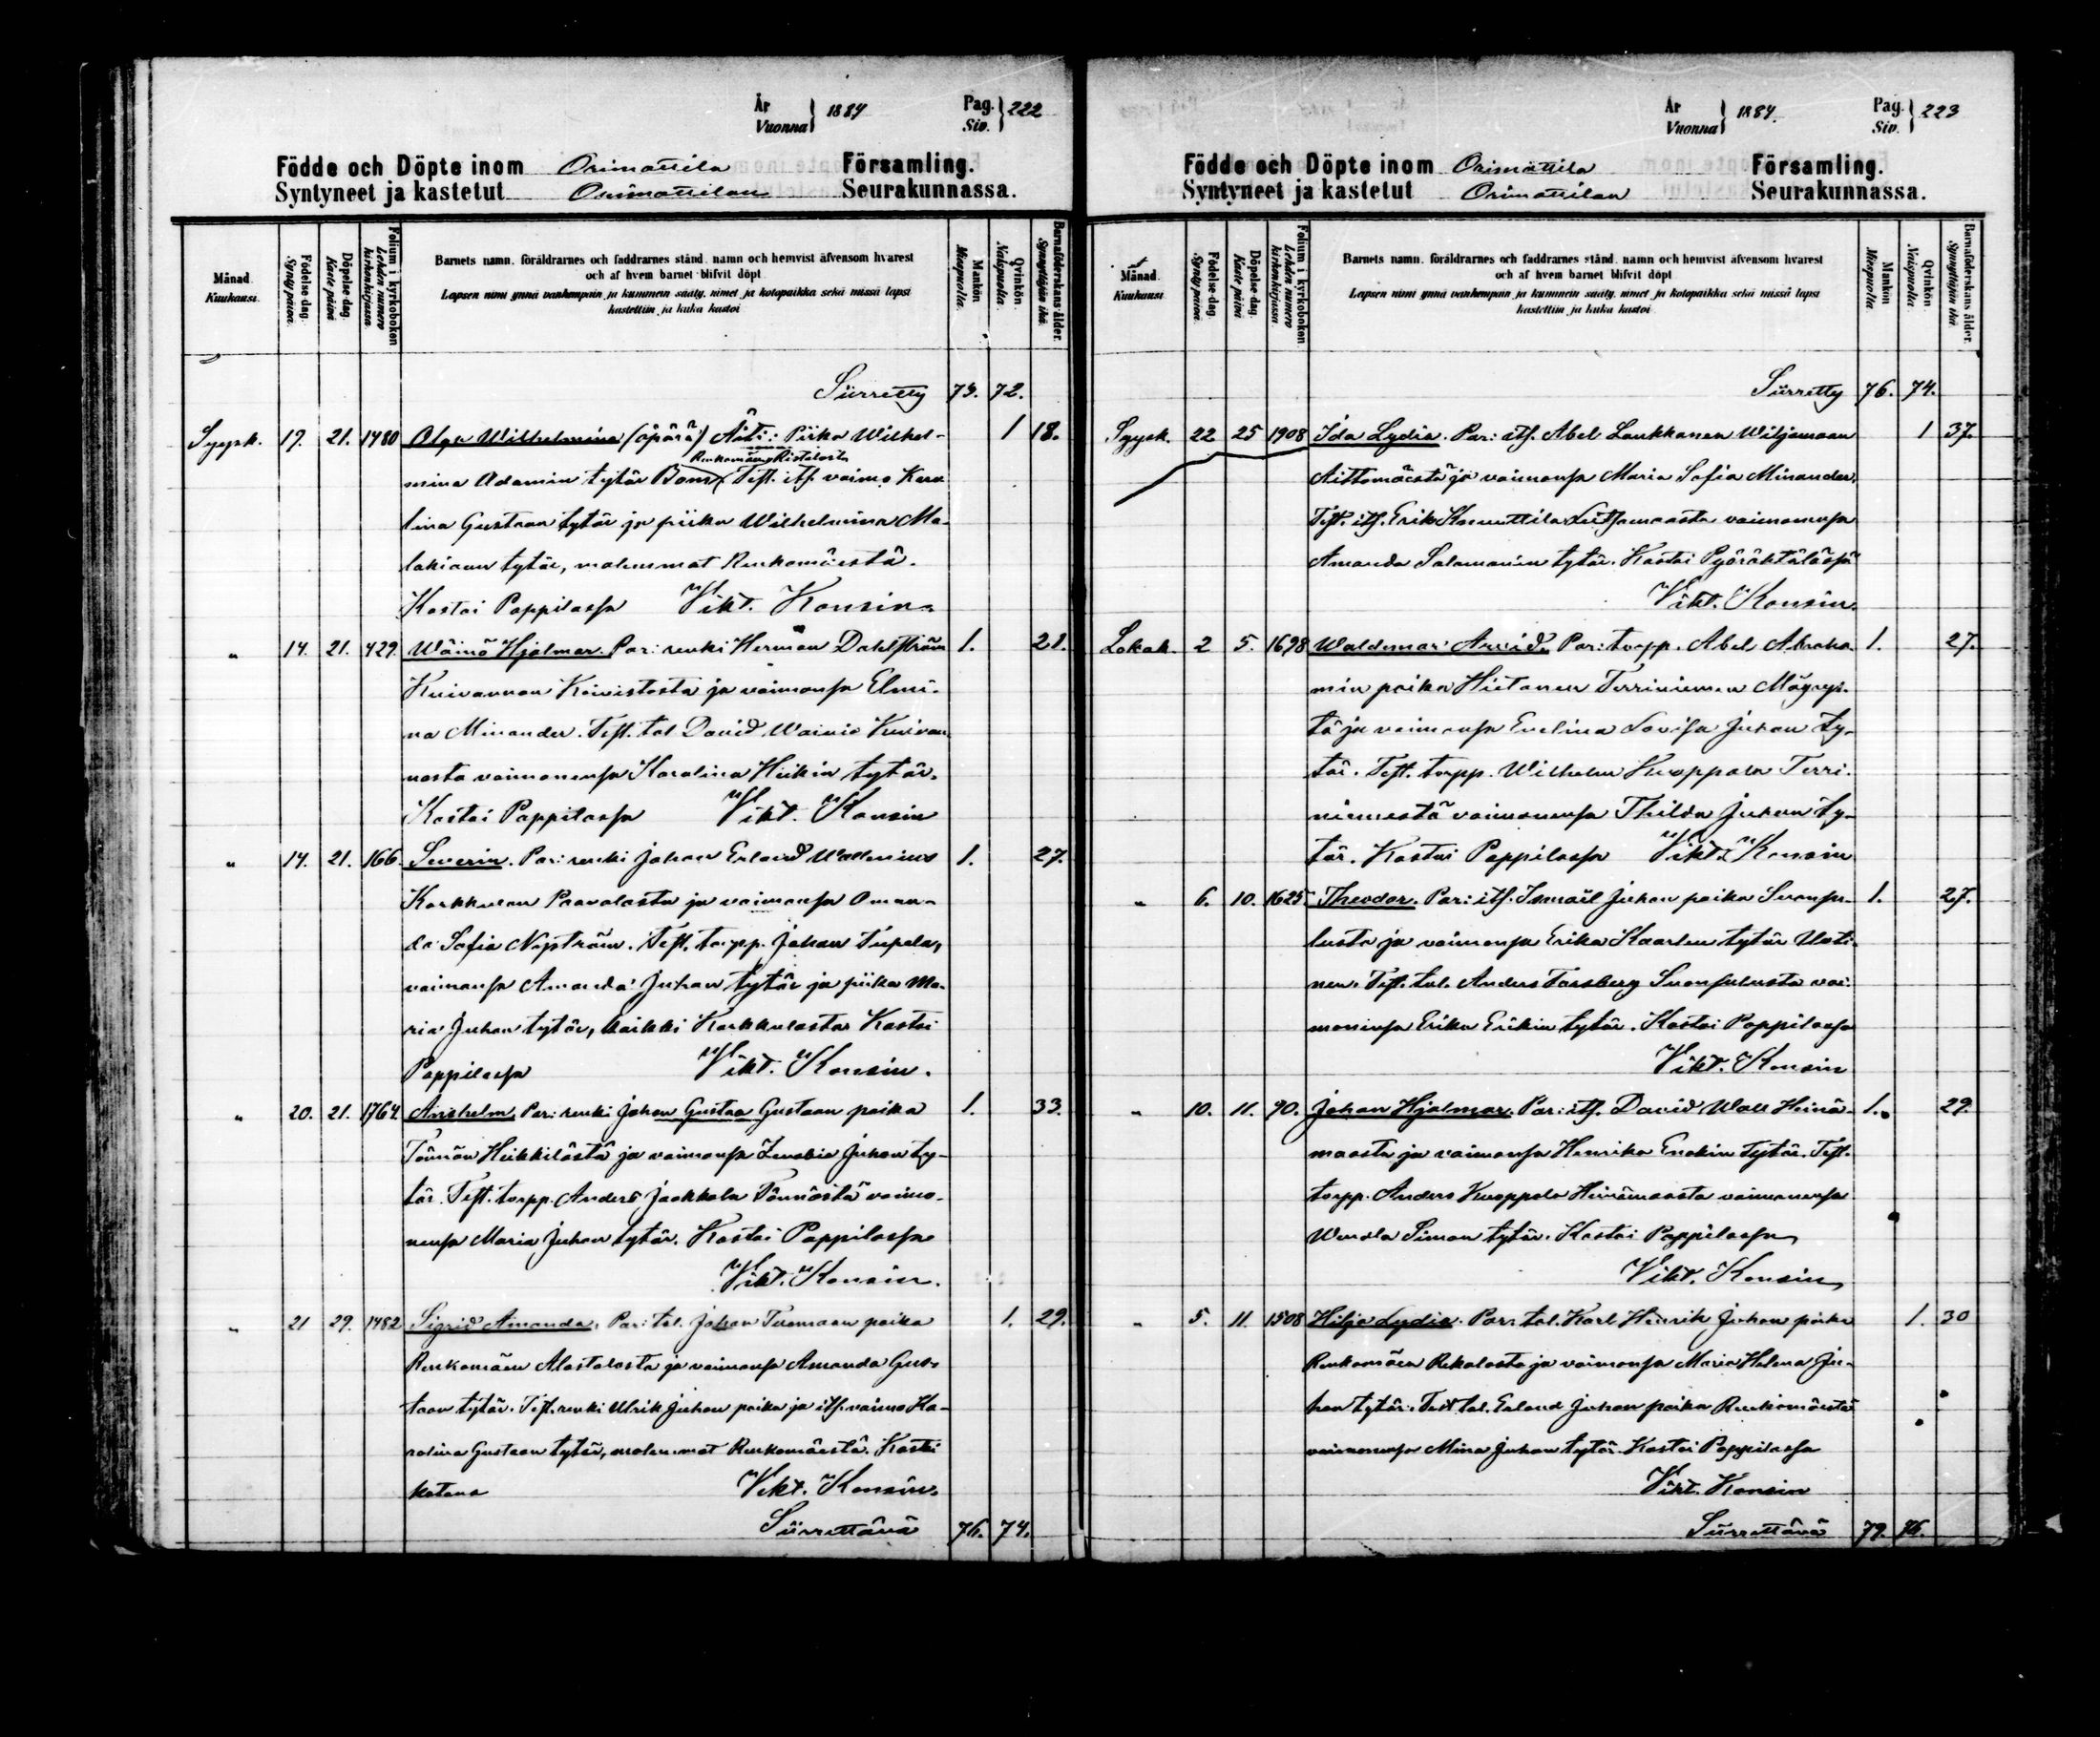 År
Vuonna } 1884
Pag.
Siv. } 222
Födde och Döpte inom Orimattila Församling.
Syntyneet ja kastetut Orimattilan Seurakunnassa.
Månad. Kuukausi.
Födelse dag. Synty päivä.
Döpelse dag. Kaste päivä
Folium i kyrkoboken Lehden numero kirkonkirjassa.
Barnets namn, föräldrarnes och faddrarnes stånd, namn och hemvist äfvensom hvarest
och af hvem barnet blifvit döpt.
Lapsen nimi ynnä vanhempain ja kummein sääty, nimet ja kotopaikka sekä missä lapsi
kastettiin ja kuka kastoi
Mankön Miespuolia.
Qvinkön. Naispuolia.
Barnaföderskans ålder. Synnyttäjän ikä.
Siirretty 73. 72.
Syysk. 19. 21. 1480 Olga Wilhelmina (äpärä) Äiti: Piika Wilhel- 1 18.
Renkomäen Ristolasta
mina Adamin tytär Test. itf. vaimo Karo
lina Gustaan tytär ja piika Wilhelmina Ma-
lakiaan tytär, molemmat Renkomäestä.
Kastoi Pappilassa Vikt. Konsin.
" 14. 21. 429. Wäinö Hjalmar. Par: renki Herman Dahlström 1. 21.
Kuivannon Koivistosta ja vaimonsa Elmi-
na Minander. Test. tal. David Wainio Kuivan-
nosta vaimonensa Karolina Heikin tytär.
Kastoi Pappilassa Vikt. Konsin
" 14. 21. 166. Severin. Par: renki Johan Erland Wallenius 1. 27.
Karkkulan Paavolasta ja vaimonsa Aman-
da Sofia Nyström. Test. torpp. Johan Tupala,
vaimonsa Amanda Juhan tytär ja piika Ma-
ria Juhan tytär, kaikki Karkkulasta. Kastoi
Pappilassa Vikt. Konsin.
" 20. 21. 1764. Anshelm. Par: renki Johan Gustaa Gustaan poika 1. 33.
Tönnön Heikkilästä ja vaimonsa Zenobia Juhan ty-
tär. Test. torpp. Anders Jaakkola Tönnöstä vaimo-
nensa Maria Juhan tytär. Kastoi Pappilassa
Vikt. Konsin.
" 21 29. 1482 Sigrid Amanda. Par: tal. Johan Tuomaan poika 1. 29.
Renkomäen Alastalosta ja vaimonsa Amanda Gus-
taan tytär. Test. renki Ulrik Juhan poika ja itf. vaimo Ka-
rolina Gustaan tytär, molemmat Renkomäestä. Kastoi
kotona Vikt. Konsin.
Siirrettävä 76. 74.
År
Vuonna } 1884.
Pag.
Siv. } 223
Födde och Döpte inom Orimattila Församling.
Syntyneet ja kastetut Orimattilan Seurakunnassa.
Månad. Kuukausi
Födelse dag. Synty päivä.
Döpelse dag. Kaste päivä
Folium i kyrkoboken Lehden numero kirkonkirjassa.
Barnets namn, föräldrarnes och faddrarnes stånd, namn och hemvist äfvensom hvarest
och af hvem barnet blifvit döpt
Lapsen nimi ynnä vanhempain ja kummein sääty, nimet ja kotopaikka sekä missä lapsi
kastettiin ja kuka kastoi
Mankön Miespuolia
Qvinkön Naispuolia.
Barnaföderskans ålder. Synnyttäjän ikä.
Siirretty 76. 74.
Syysk. 22 25 1908 Ida Lydia. Par: itf. Abel Laukkanen Wiljamaan 1 37.
Aittomäestä ja vaimonsa Maria Sofia Minander.
Test. itf. Erik Knuuttila vaimonensa
Amanda Salamonin tytär. Kastoi Pyöräktälässä
Vikt. Konsin.
Lokak. 2 5. 1698 Waldemar Arvid. Par: torpp. Abel Abraha- 1. 27.
min poika Hietanen Terriniemen
tä ja vaimonsa Evelina Lovisa Juhan ty-
tär. Test. torpp. Wilhelm Kuoppala Terri-
niemestä vaimonensa Thilda Juhan ty-
tär. Kastoi Pappilassa Vikt. Konsin
" 6. 10. 1625. Theodor. Par: itf. Ismaël Juhan poika Suonsu- 1. 27.
lusta ja vaimonsa Erika Kaarlen tytär Uoti-
nen. Test. tal. Anders Forsberg vai-
monensa Erika Erikin tytär. Kastoi Pappilassa
Vikt. Konsin
" 10. 11. 90. Johan Hjalmar. Par: itf. David Wall Heinä- 1. 29.
maasta ja vaimonsa Henrika Enokin tytär. Test.
torpp. Anders Kuoppala Heinämaasta vaimonensa
Wendla Simon tytär. Kastoi Pappilassa
Vikt. Konsin
" 5. 11. 1508 Hilja Lydia. Par: tal. Karl Henrik Juhan poika 1. 30
Renkomäen Rekolasta ja vaimonsa Maria Helena Ju-
han tytär. Test tal. Erland Juhan poika Renkomäestä
vaimonensa Mina Juhan tytär. Kastoi Pappilassa
Vikt. Konsin
Siirrettävä 79. 76.